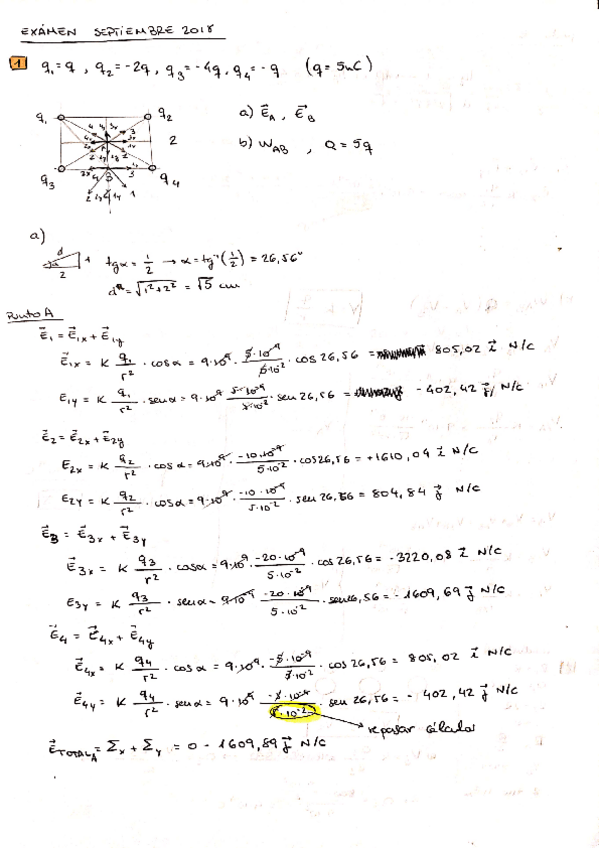 EXÁMEN SEPTIEMBRE 2018
1 q₁=q, q₂=-2q, q₃=-4q, q₄=-q (q=5nC)
q₁ q₂ a) E⃗_A, E⃗_B
2 b) W_AB, Q=5q
q₃ q₄
a)
d 1 tgα = 1/2 → α=tg⁻¹(1/2) = 26,56°
2 d = √(1²+2²) = √5 cm
Punto A
E⃗₁ = E⃗₁ₓ + E⃗₁y
E⃗₁ₓ = K q₁/r² · cosα = 9·10⁹ · 5·10⁻⁹/5·10⁻² · cos 26,56 = 805,02 i⃗ N/C
E₁y = K q₁/r² · senα = 9·10⁹ 5·10⁻⁹/5·10⁻² · sen 26,56 = - 402,42 j⃗ N/C
E⃗₂ = E⃗₂ₓ + E⃗₂y
E₂ₓ = K q₂/r² · cosα = 9·10⁹ · -10·10⁻⁹/5·10⁻² · cos26,56 = +1610,04 i⃗ N/C
E₂y = K q₂/r² · cosα = 9·10⁹ · -10·10⁻⁹/5·10⁻² · sen 26,56 = 804,84 j⃗ N/C
E⃗₃ = E⃗₃ₓ + E⃗₃y
E⃗₃ₓ = K q₃/r² · cosα = 9·10⁹ · -20·10⁻⁹/5·10⁻² · cos 26,56 = -3220,08 i⃗ N/C
E₃y = K q₃/r² · senα = 9·10⁹ · -20·10⁻⁹/5·10⁻² · sen26,56 = -1609,69 j⃗ N/C
E⃗₄ = E⃗₄ₓ + E⃗₄y
E⃗₄ₓ = K q₄/r² · cosα = 9·10⁹ · -5·10⁻⁹/5·10⁻² · cos 26,56 = 805,02 i⃗ N/C
E⃗₄y = K q₄/r² · senα = 9·10⁹ -5·10⁻⁹/5·10⁻² · sen 26,56 = - 402,42 j⃗ N/C
repasar cálculos
E⃗_TOTAL_A = Σₓ + Σy = 0 - 1609,89 j⃗ N/C